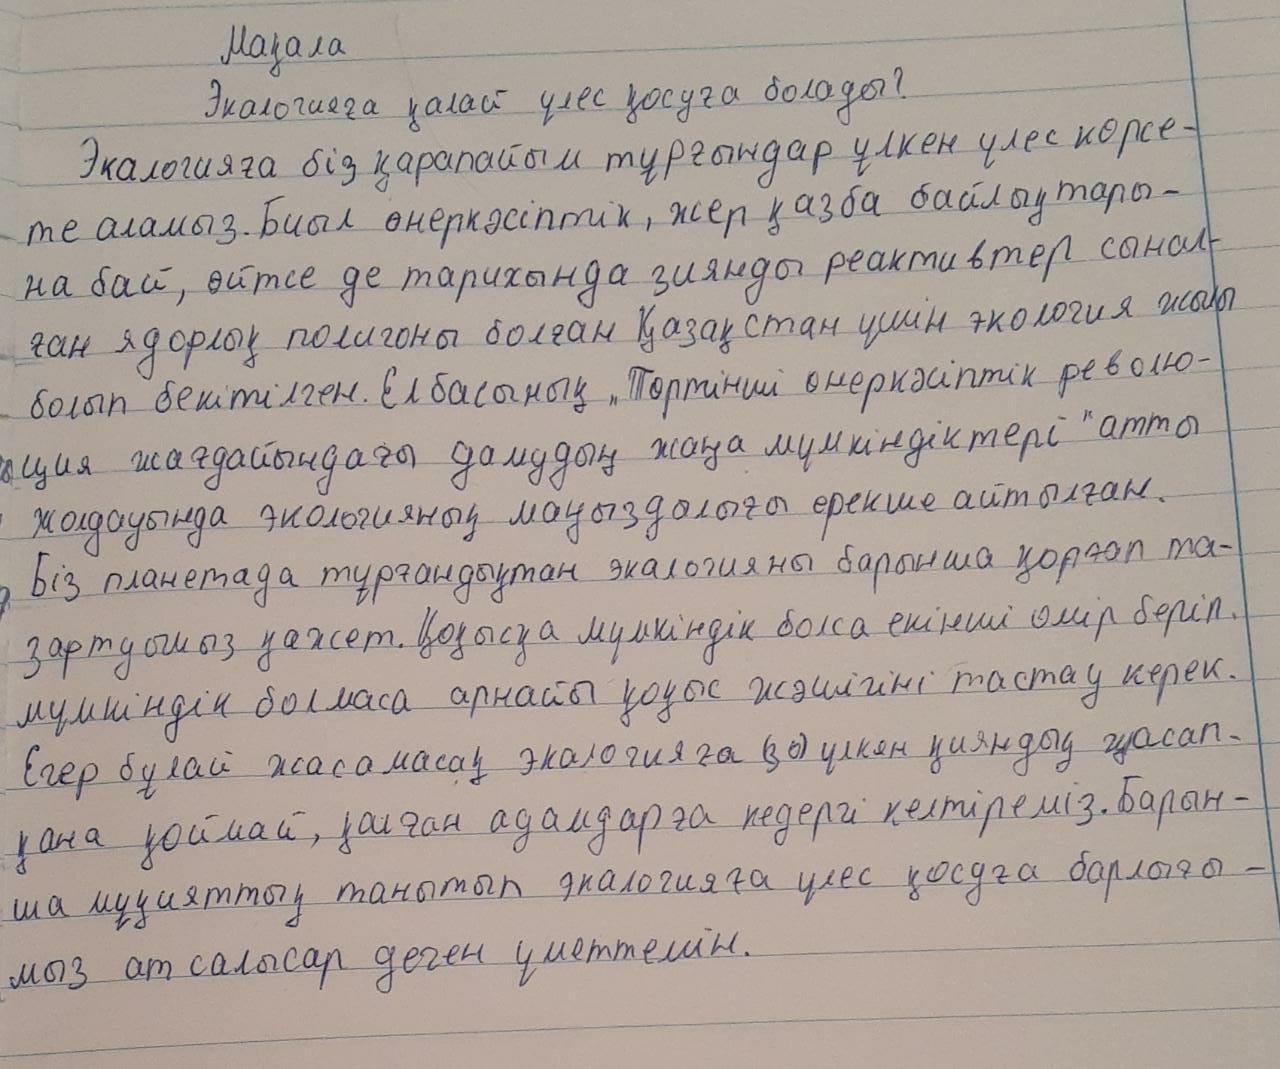 Мақала
Экалогияға қалай үлес қосуға болады?
Экалогияға біз қарапайым тұрғындар үлкен үлес көрсе-
те аламыз. Биыл өнеркәсіптік, жер қазба байлықтары-
на бай, өйтсе де тарихында зиянды реактивтер санал-
ған ядорлық полигоны болған Қазақстан үшін экология жылы
болып бекітілген. Елбасының „Төртінші өнеркәсіптік револю-
ция жағдайындағы дамудың жаңа мүмкіндіктері" атты
жолдауында экологияның маңыздолығы ерекше айтылған.
Біз планетада тұрғандықтан экалогияны барынша қорғап та-
зартуымыз қажет. Қоқысқа мүмкіндік болса екінші өмір беріп.
мүмкіндік болмаса арнайы қоқыс жәшігіні тастау керек.
Егер бұлай жасамасақ экалогияға үлкен қияндық жасап-
қана қоймай, қалған адамдарға кедергі келтіреміз. Барын-
ша мұқияттық танытып экалогияға үлес қосуға барлығы-
мыз ат салысар деген үметтемін.